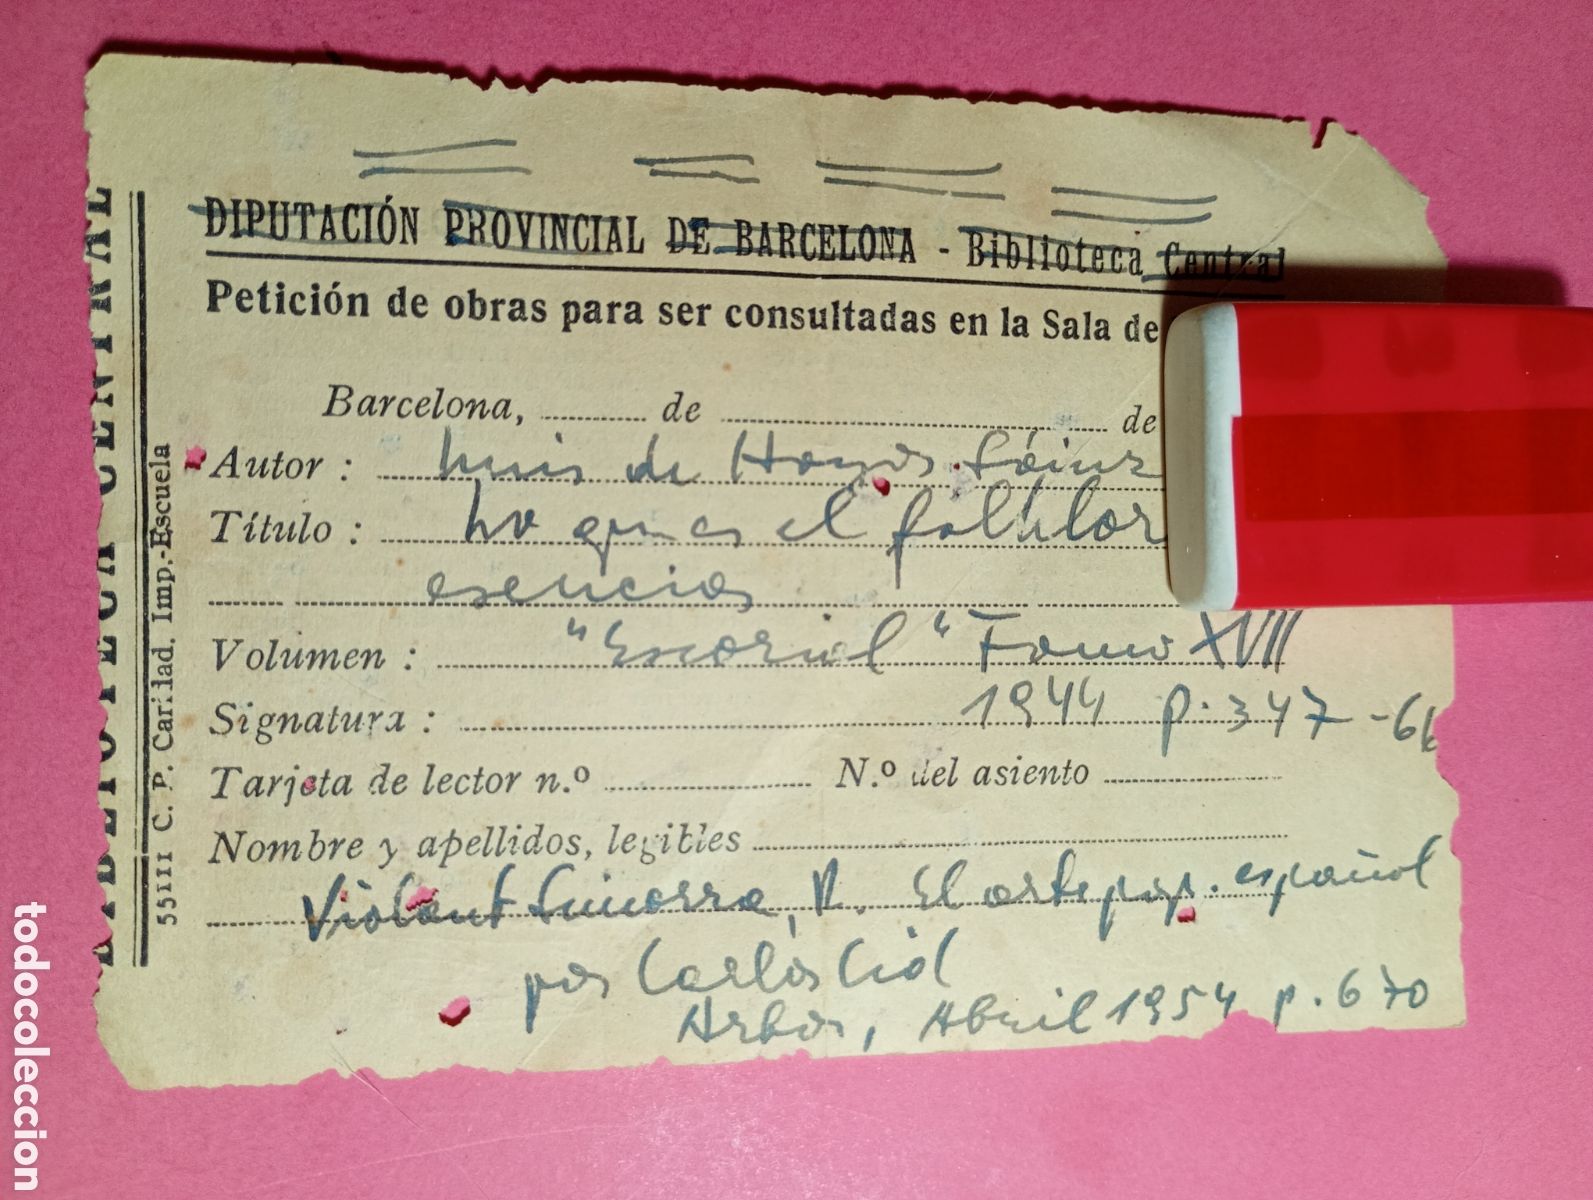 DIPUTACIÓN PROVINCIAL DE BARCELONA - Biblioteca Central
Petición de obras para ser consultadas en la Sala de
Barcelona, de de
Autor : Luis de Hoyos Sáinz
Título : Lo que es el folklor
esencias
Volumen : "Escorial" Tomo XVII
Signatura : 1944 p. 347-66
Tarjeta de lector n.º N.º del asiento
Nombre y apellidos, legibles
Violant Simorra, R. El arte pop. español
por Carlos Cid
Arbor, Abril 1954 p. 670
BIBLIOTECA CENTRAL
55111 C. P. Caridad. Imp.-Escuela
todocoleccion